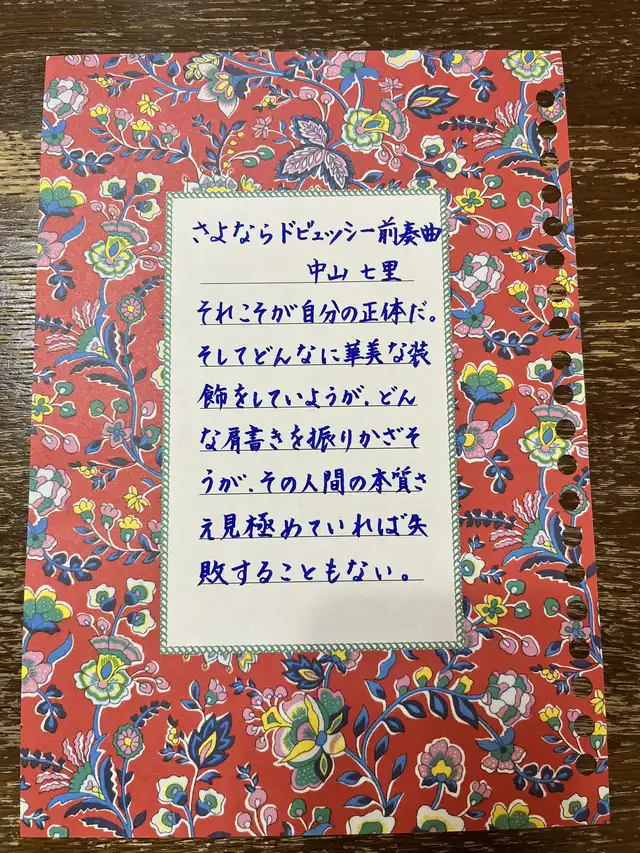 さよならドビュッシー前奏曲
中山七里
それこそが自分の正体だ。
そしてどんなに華美な装
飾をしていようが、どん
な肩書きを振りかざそ
うが、その人間の本質さ
え見極めていれば失
敗することもない。